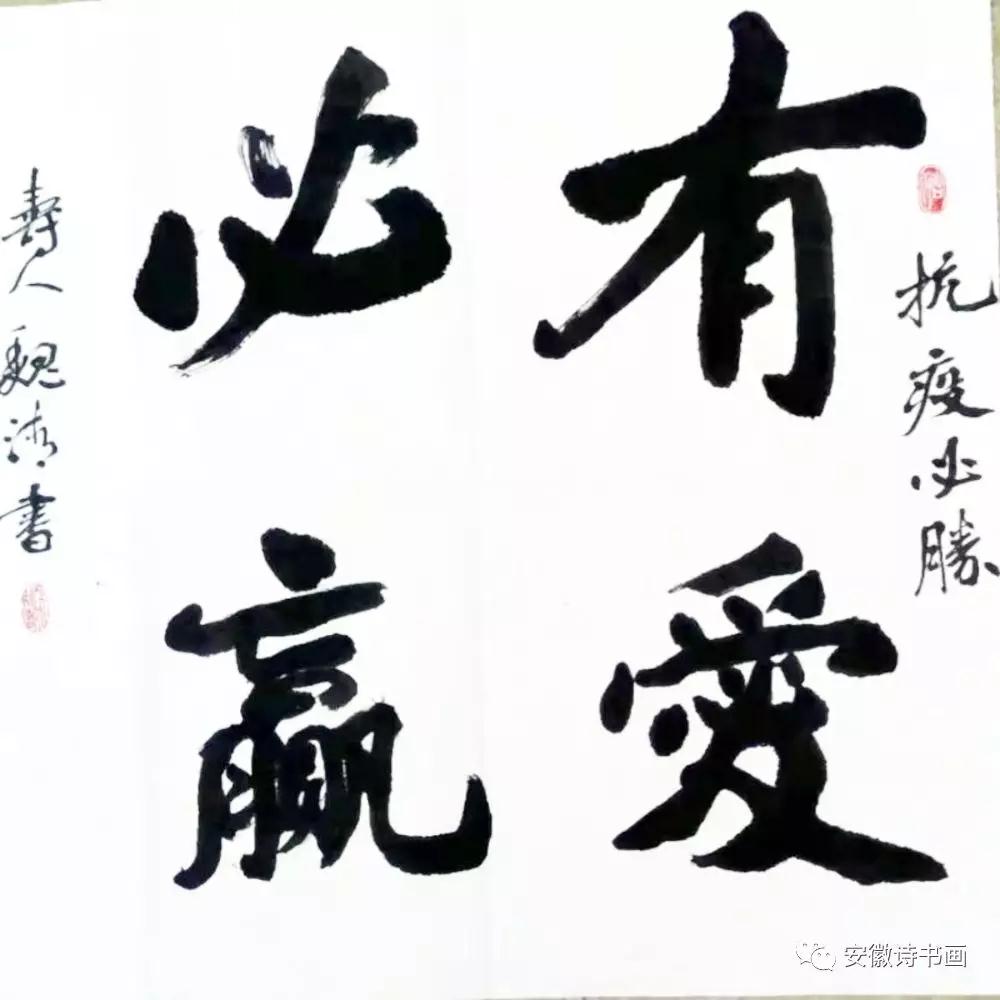 抗疫必勝
有愛
必贏
壽人 魏 書
安徽诗书画